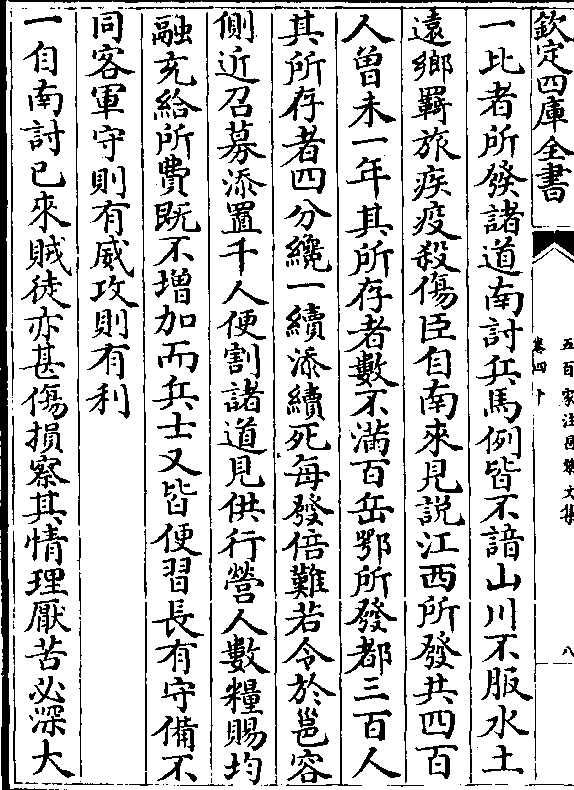 欽定四庫全書
五百家注昌黎文集
卷四十
八
一比者所發諸道南討兵馬例皆不諳山川不服水土
遠鄉羇旅疾疫殺傷臣自南來見說江西所發共四百
人曾未一年其所存者數不滿百岳鄂所發都三百人
其所存者四分纔一續添續死每發倍難若令於邕容
側近召募添置千人便割諸道見供行營人數糧賜均
融充給所費既不增加而兵士又皆便習長有守備不
同客軍守則有威攻則有利
一自南討已來賊徒亦甚傷損察其情理厭苦必深大